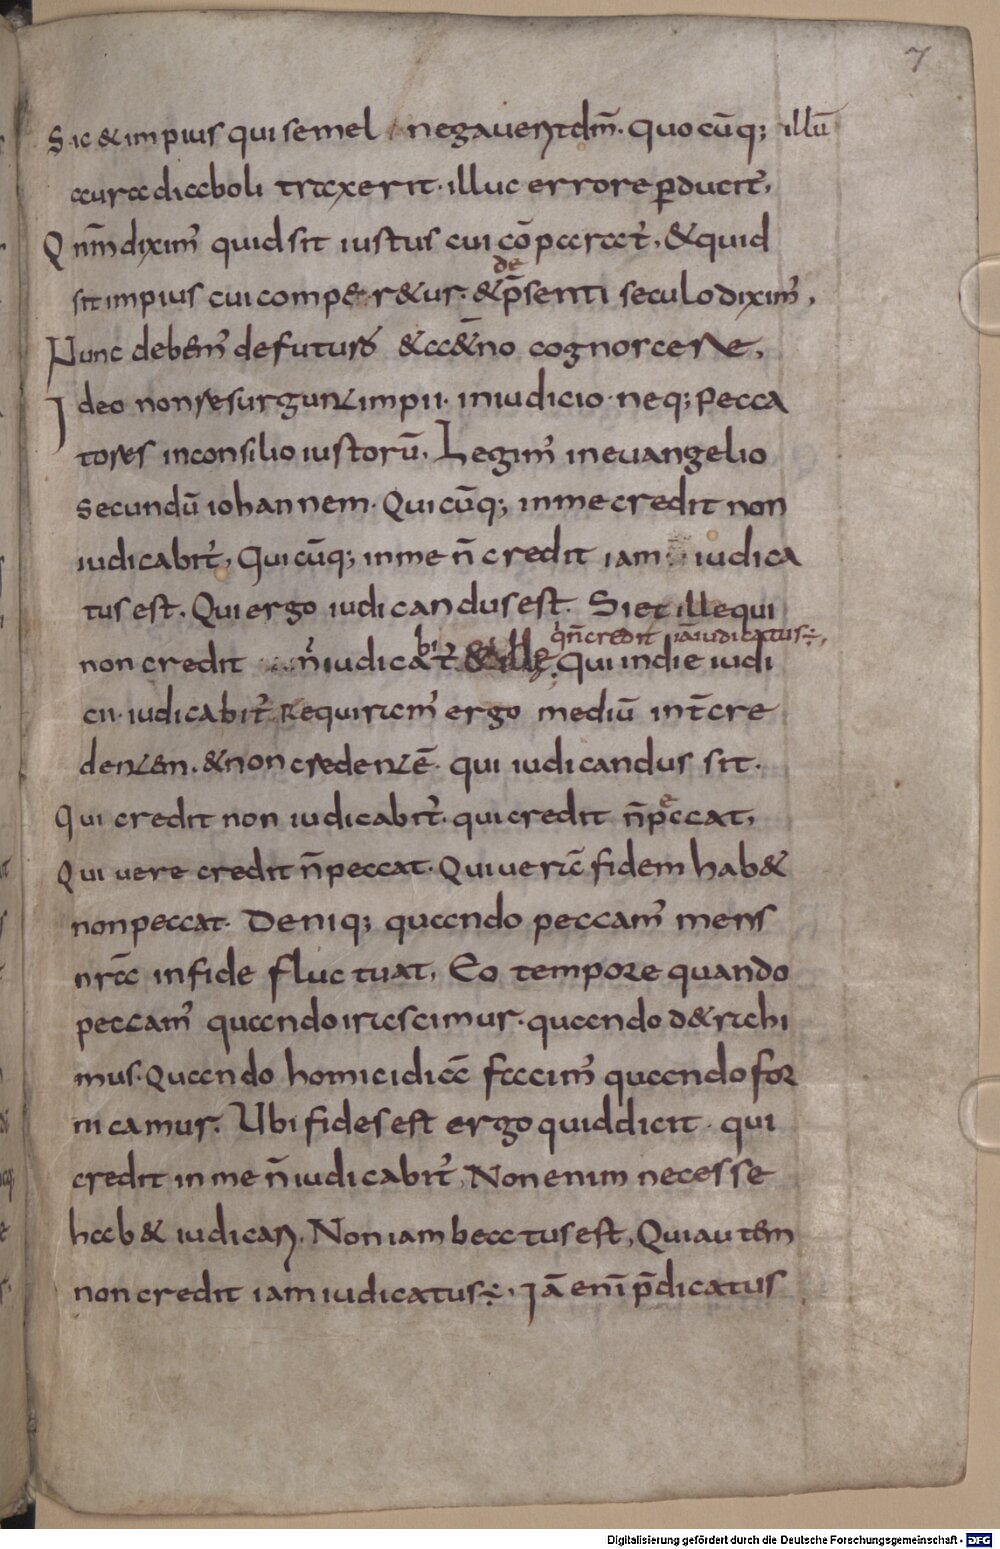 7
Sic & impius qui semel negauert dm̄. quocūq; illū
aura diaboli traxerit. illuc errore p̱ducit᷒,
Qm̄ dixim᷒ quid sit iustus cui cōparat᷒, & quid
sit impius cui comp&r&ur. & de p̄senti seculo dixim᷒,
Nunc debem᷒ de futuro & aet̄no cognoscere,
Ideo non resurgunt impii. in iudicio. neq; pecca
tores in consilio iustorū. Legim᷒ in euangelio
secundū iohannem. Quicūq; in me credit non
iudicabit᷒, Quicūq; in me n̄ credit iam iudica
tus est. Qui ergo iudicandus est. Si et ille qui
q̇ n̄ credit iā iudicatus ÷,
non credit n̄ iudicabit᷒ & ille qui in die iudi
cii. iudicabit᷒. Requiram᷒ ergo mediū int̄ cre
dentem. & non credentē. qui iudicandus sit.
Qui credit non iudicabit᷒. qui credit n̄ peccat,
Qui uere credit n̄ peccat. Qui uera fidem hab&
non peccat. Deniq; quando peccam᷒ mens
nr̄a in fide fluctuat, Eo tempore quando
peccam᷒ quando irascimur. quando d&rahi
mus. Quando homicidia facim᷒ quando for
nicamur. Ubi fides est ergo quid dicit. qui
credit in me n̄ iudicabit᷒, Non enim necesse
hab& iudicari. Non iam beatus est, Qui autem
non credit iam iudicatus ÷. Iā enī p̄dicatus
Digitalisierung gefördert durch die Deutsche Forschungsgemeinschaft - DFG